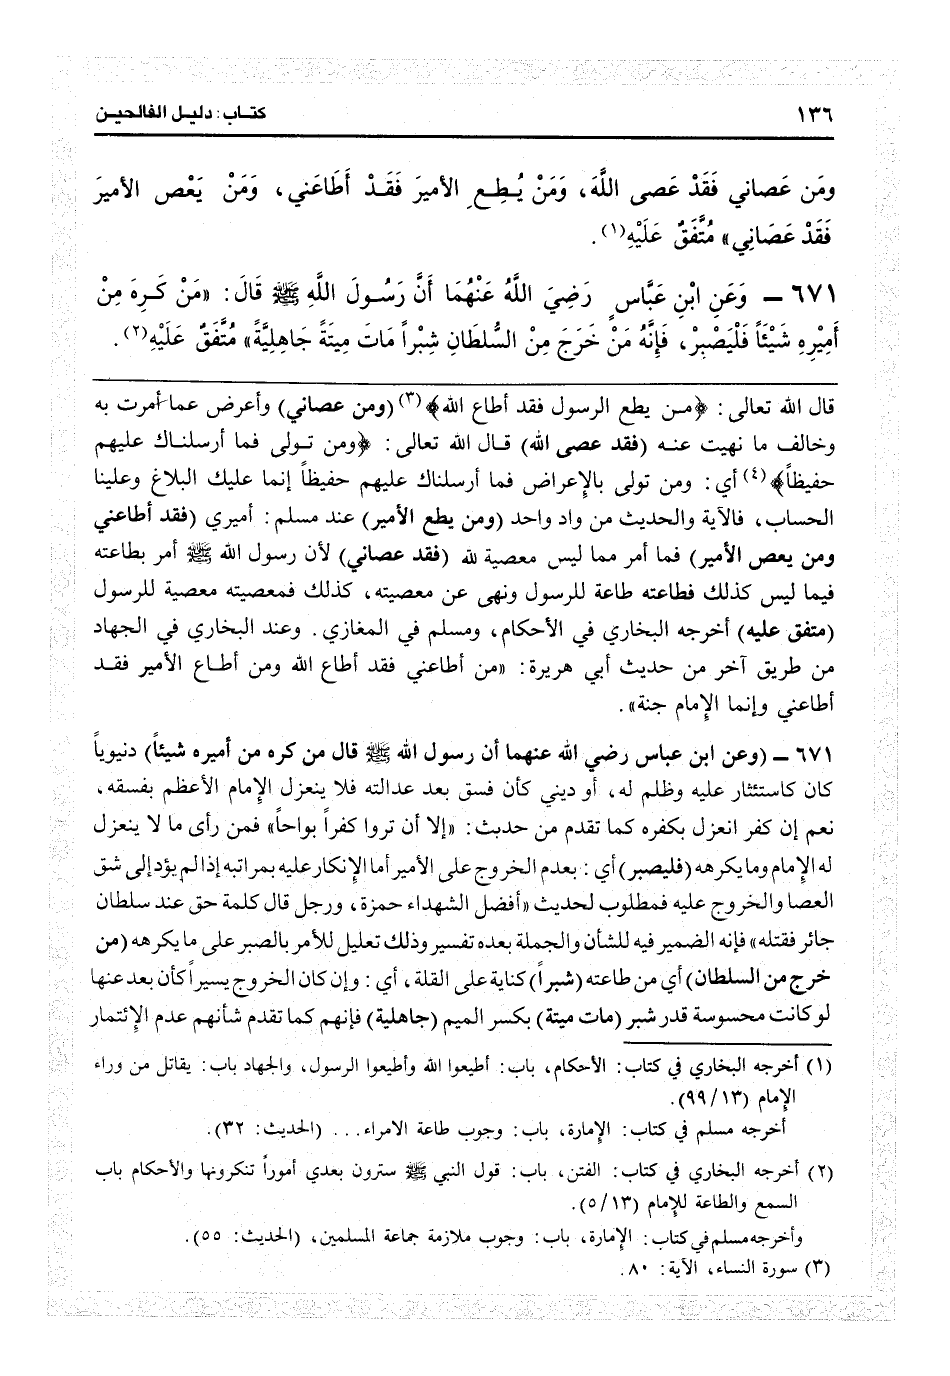 ١٣٦ كتاب: دليل الفالحين
ومَن عَصاني فَقَدْ عَصى اللَّهَ، وَمَنْ يُطِعِ الأميرَ فَقَـدْ أَطَاعَني، وَمَنْ يَعْصِ الأميرَ
فَقَدْ عَصَانِي» مُتَّفَقٌ عَلَيْهِ(١).
٦٧١ ــ وَعَنِ ابْنِ عَبَّاسٍ رَضِيَ اللَّهُ عَنْهُمَا أَنَّ رَسُـولَ اللَّهِ ﷺ قَالَ: «مَنْ كَـرِهَ مِنْ
أَمِيْرِهِ شَيْئاً فَلْيَصْبِرْ، فَإِنَّهُ مَنْ خَرَجَ مِنْ السُّلطَانِ شِبْراً مَاتَ مِيتَةً جَاهِلِيَّةً» مُتَّفَقٌ عَلَيْهِ(٢).
قال الله تعالى: ﴿مـن يطع الرسول فقد أطاع الله﴾(٣) (ومن عصاني) وأعرض عما أمرت به
وخالف ما نهيت عنـه (فقد عصى الله) قـال الله تعالى: ﴿ومن تـولى فما أرسلنـاك عليهم
حفيظاً﴾(٤) أي: ومن تولى بالإعراض فما أرسلناك عليهم حفيظاً إنما عليك البلاغ وعلينا
الحساب، فالآية والحديث من واد واحد (ومن يطع الأمير) عند مسلم: أميري (فقد أطاعني
ومن يعص الأمير) فما أمر مما ليس معصية لله (فقد عصاني) لأن رسول الله ﷺ أمر بطاعته
فيما ليس كذلك فطاعته طاعة للرسول ونهى عن معصيته، كذلك فمعصيته معصية للرسول
(متفق عليه) أخرجه البخاري في الأحكام، ومسلم في المغازي. وعند البخاري في الجهاد
من طريق آخر من حديث أبي هريرة: «من أطاعني فقد أطاع الله ومن أطـاع الأمير فقـد
أطاعني وإنما الإمام جنة».
٦٧١ ــ (وعن ابن عباس رضي الله عنهما أن رسول الله ﷺ قال من كره من أميره شيئاً) دنيوياً
كان كاستئثار عليه وظلم له، أو ديني كأن فسق بعد عدالته فلا ينعزل الإمام الأعظم بفسقه،
نعم إن كفر انعزل بكفره كما تقدم من حديث: «إلا أن تروا كفراً بواحاً» فمن رأى ما لا ينعزل
له الإمام وما يكرهه (فليصبر) أي: بعدم الخروج على الأمير أما الإنكار عليه بمراتبه إذا لم يؤد إلى شق
العصا والخروج عليه فمطلوب لحديث «أفضل الشهداء حمزة، ورجل قال كلمة حق عند سلطان
جائر فقتله» فإنه الضمير فيه للشأن والجملة بعده تفسير وذلك تعليل للأمر بالصبر على ما يكرهه (من
خرج من السلطان) أي من طاعته (شبراً) كناية على القلة، أي: وإن كان الخروج يسيراً كأن بعد عنها
لو كانت محسوسة قدر شبر (مات ميتة) بكسر الميم (جاهلية) فإنهم كما تقدم شأنهم عدم الإئتمار
(١) أخرجه البخاري في كتاب: الأحكام، باب: أطيعوا الله وأطيعوا الرسول، والجهاد باب: يقاتل من وراء
الإمام (٩٩/١٣).
أخرجه مسلم في كتاب: الإمارة، باب: وجوب طاعة الامراء... (الحديث: ٣٢).
(٢) أخرجه البخاري في كتاب: الفتن، باب: قول النبي ﷺ سترون بعدي أموراً تنكرونها والأحكام باب
السمع والطاعة للإمام (٥/١٣).
وأخرجه مسلم في كتاب: الإمارة، باب: وجوب ملازمة جماعة المسلمين، (الحديث: ٥٥).
(٣) سورة النساء، الآية: ٨٠.